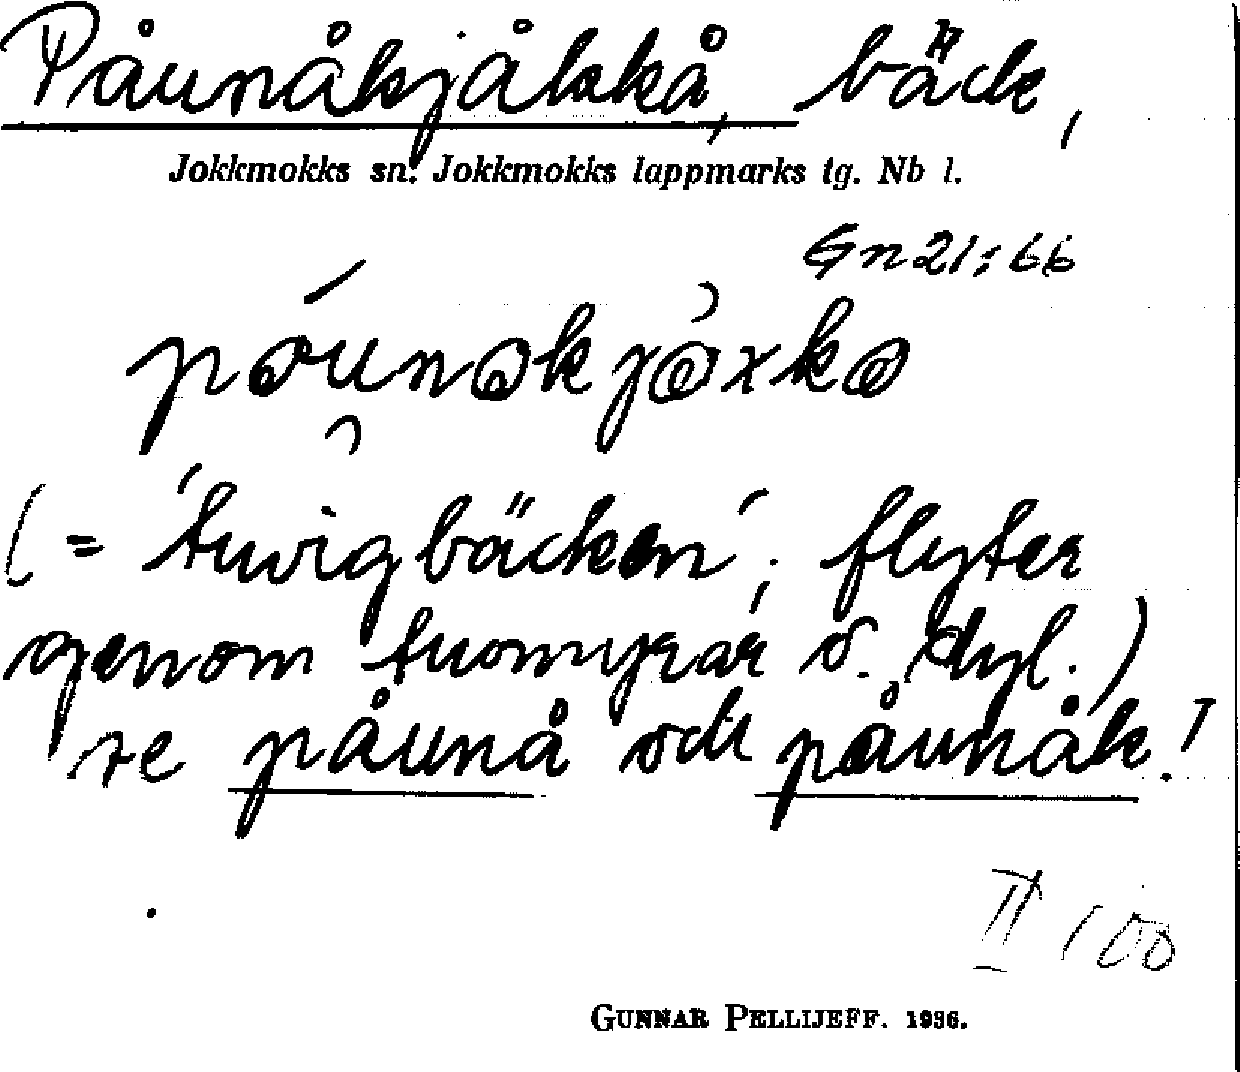 Påunåkjåkkå, bäck,
Jokkmokks sn. Jokkmokks lappmarks tg. Nb l.
Gn 21:66
(= 'tuvigbäcken'; flyter
genom tuomyrar o. dyl.)
se påunå och påunåk!
II 100
GUNNAR PELLIJEFF. 1936.